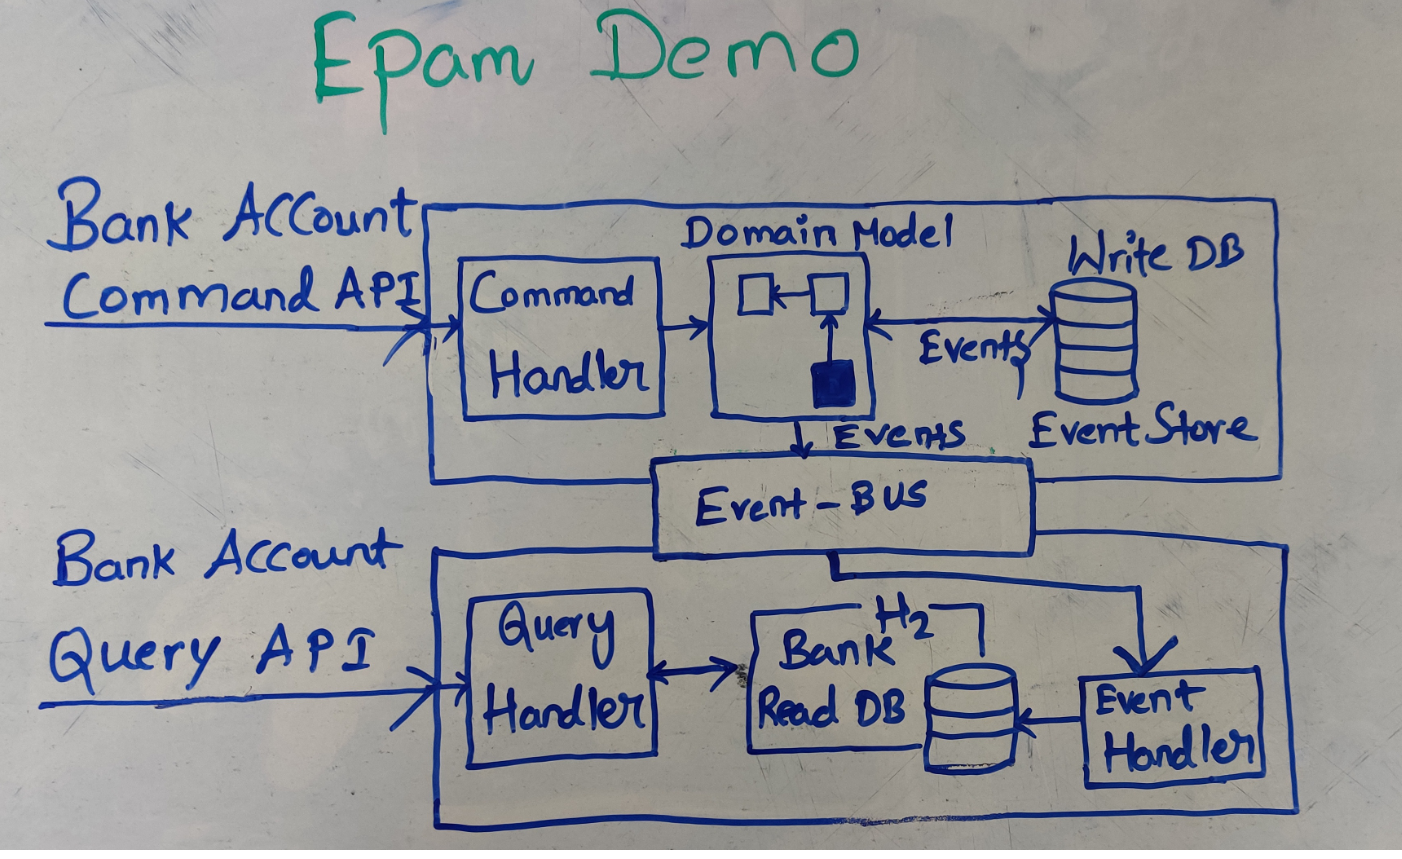 Epam Demo
Bank Account
Command API
Command
Handler
Domain Model
Write DB
Events
Event Store
Events
Event - BUS
Bank Account
Query API
Query
Handler
H2
Bank
Read DB
Event
Handler